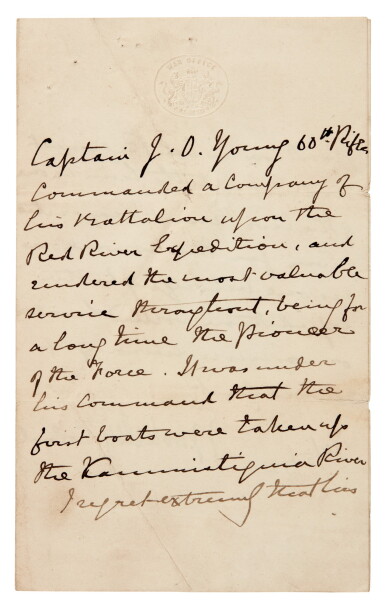 WAR OFFICE
Captain J. O. Young 60th Rifles
Commanded a Company of
his Battalion upon the
Red River Expedition, and
rendered the most valuable
service throughout, being for
a long time the pioneer
of the Force. It was under
his command that the
first boats were taken up
the Kamministiquia River
I regret extremely that his